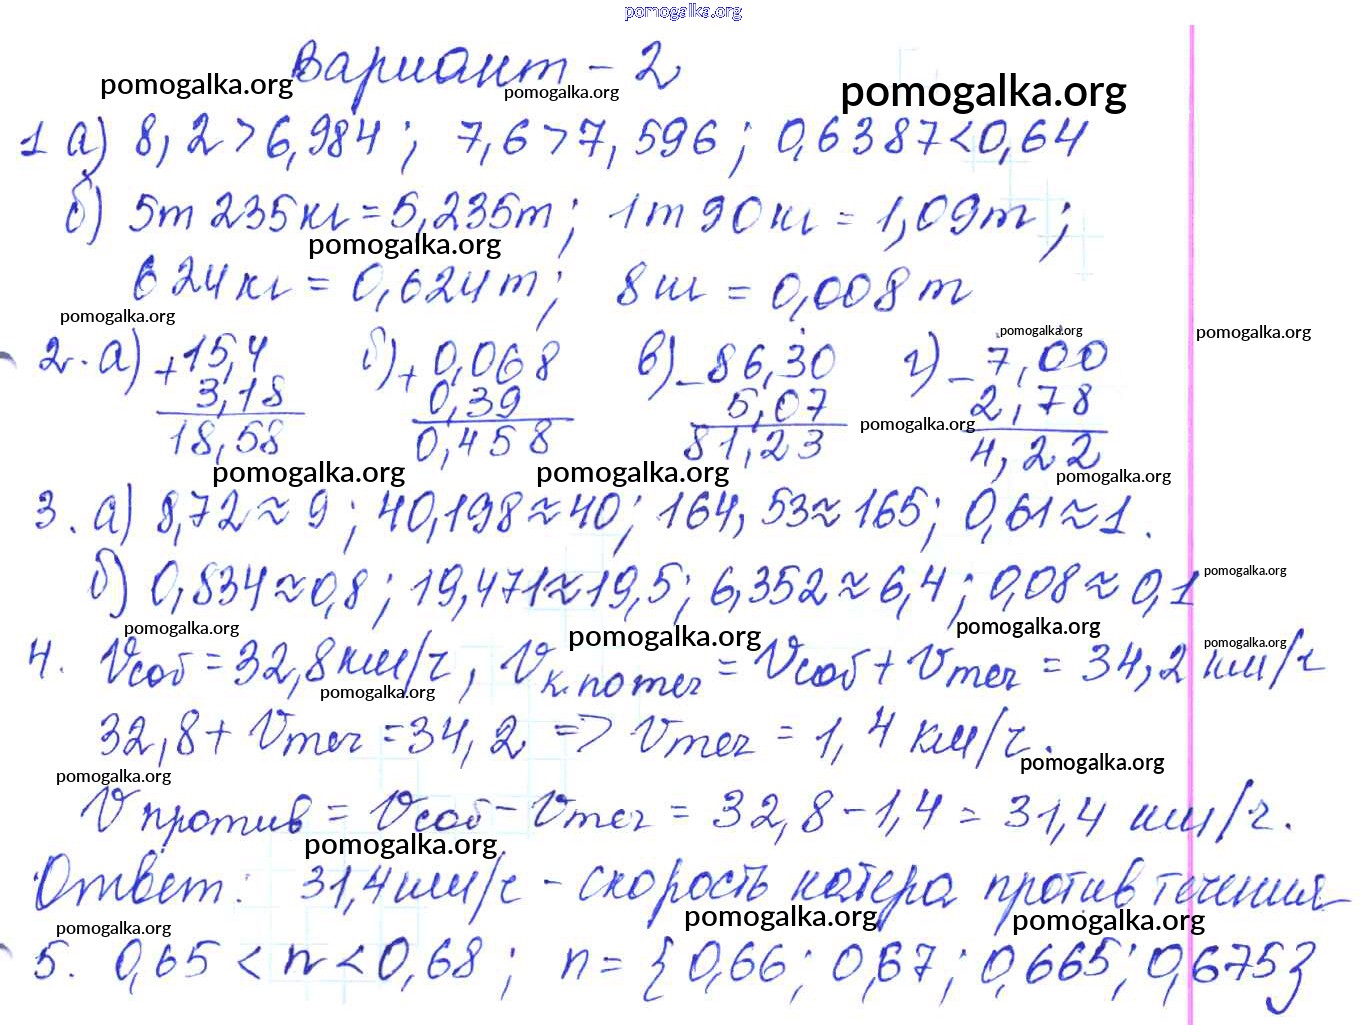 pomogalka.org
Вариант - 2
pomogalka.org pomogalka.org pomogalka.org
1 а) 8,2>6,984; 7,6>7,596; 0,6387<0,64
б) 5т 235кг=5,235т; 1т 90кг=1,09т;
pomogalka.org
624кг=0,624т; 8кг=0,008т
pomogalka.org pomogalka.org pomogalka.org
2. а) +15,4 б) + 0,068 в) - 86,30 г) - 7,00
3,18 0,39 5,07 2,78
pomogalka.org
18,58 0,458 81,23 4,22
pomogalka.org pomogalka.org pomogalka.org
3. а) 8,72≈9; 40,198≈40; 164,53≈165; 0,61≈1.
б) 0,834≈0,8; 19,471≈19,5; 6,352≈6,4; 0,08≈0,1
pomogalka.org
pomogalka.org pomogalka.org pomogalka.org pomogalka.org
4. Vсоб=32,8км/ч, Vк.по теч=Vсоб+Vтеч=34,2км/ч
pomogalka.org
32,8+Vтеч=34,2 => Vтеч=1,4 км/ч.
pomogalka.org pomogalka.org
Vпротив=Vсоб-Vтеч=32,8-1,4=31,4 км/ч.
pomogalka.org
Ответ: 31,4км/ч - скорость катера против течения
pomogalka.org pomogalka.org pomogalka.org
5. 0,65<n<0,68; n={0,66; 0,67; 0,665; 0,675}